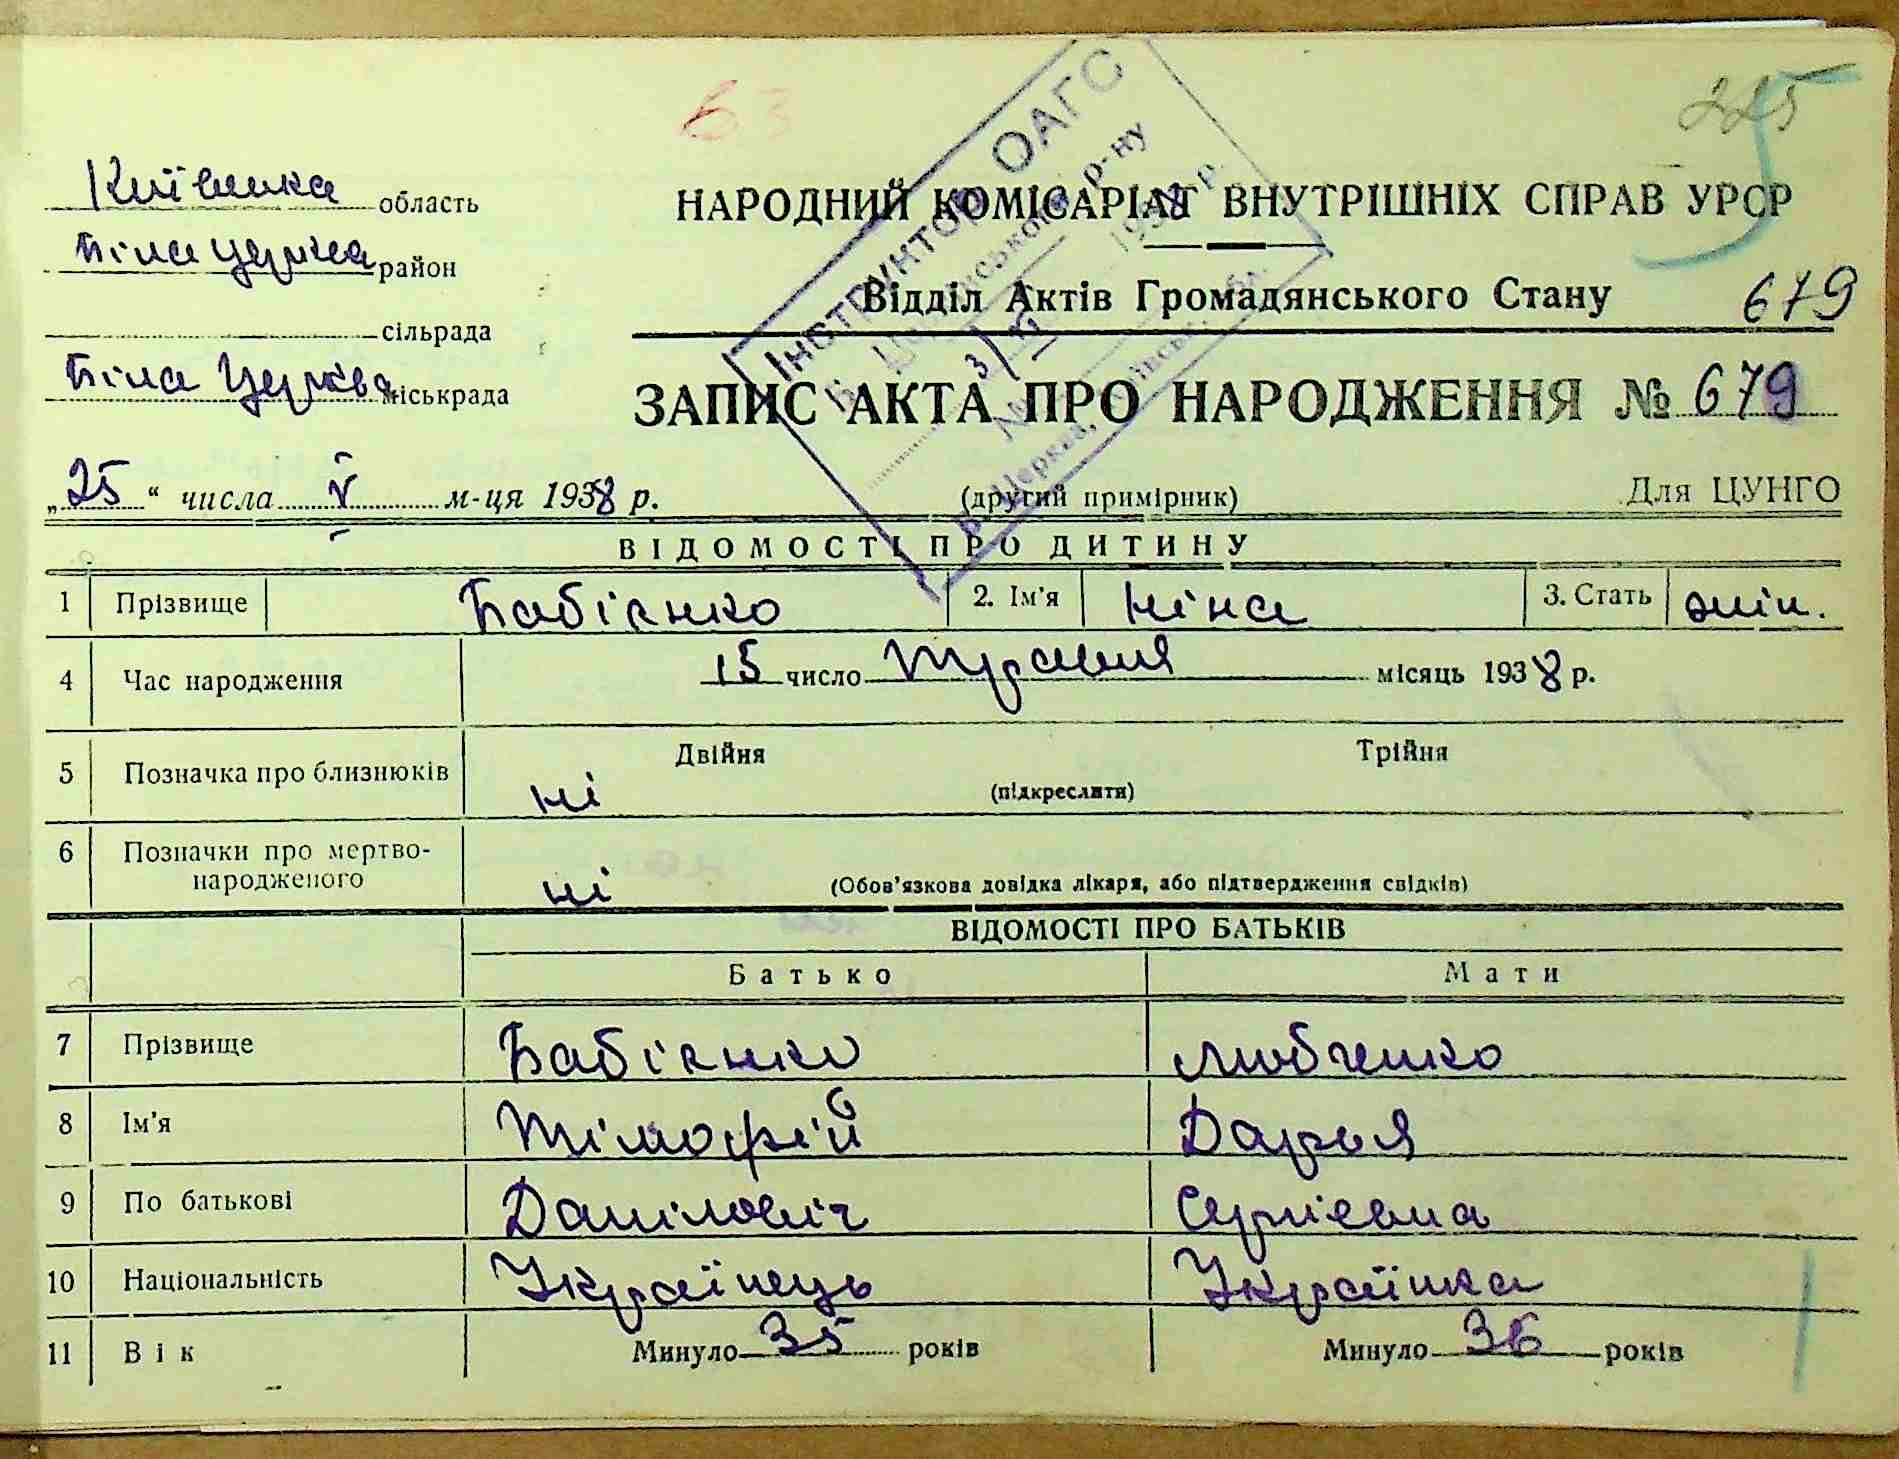 63
225
Інструктор ОАГС
Б. Церківського р-ну
193 р.
Київська область
НАРОДНИЙ КОМІСАРІАТ ВНУТРІШНІХ СПРАВ УРСР
Біла церква район
Відділ Актів Громадянського Стану 679
сільрада
Біла Церква міськрада
ЗАПИС АКТА ПРО НАРОДЖЕННЯ № 679
„25“ числа V м-ця 1938 р. (другий примірник) Для ЦУНГО
ВІДОМОСТІ ПРО ДИТИНУ
1 Прізвище Бабієнко 2. Ім'я Ніна 3. Стать жін.
4 Час народження 15 число травня місяць 1938 р.
5 Позначка про близнюків ні Двійня Трійня
(підкреслити)
6 Позначки про мертво-
народженого ні (Обов'язкова довідка лікаря, або підтвердження свідків)
ВІДОМОСТІ ПРО БАТЬКІВ
Батько Мати
7 Прізвище Бабієнко Любченко
8 Ім'я Тімофій Дарья
9 По батькові Данілович Сергієвна
10 Національність Українець Українка
11 Вік Минуло 35 років Минуло 36 років